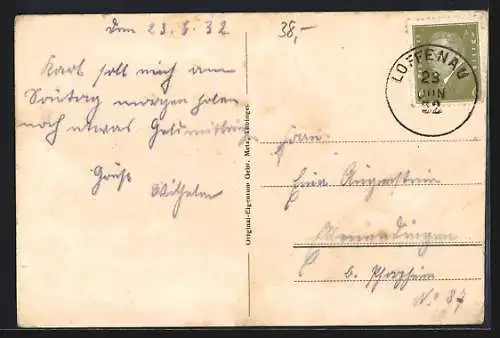 Den 23.6.32
38,-
Karl soll mich am
Sonntag morgen holen
noch etwas Geld mitbringen
Gruß
Wilhelm
Original-Eigentum Gebr. Metz, Tübingen
LOFFENAU
23
JUN
32
Frau
Augenstein
b. Pforzheim
No 37